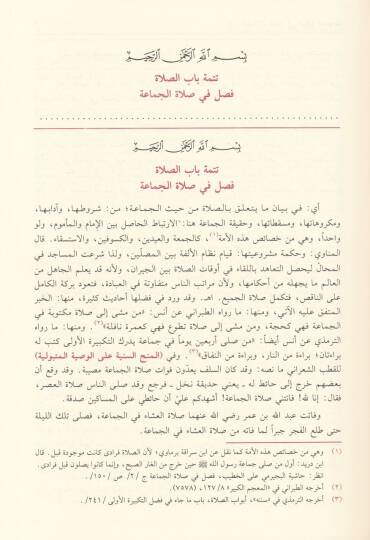 بِسْمِ اللَّهِ الرَّحْمَنِ الرَّحِيمِ
تتمة باب الصلاة
فصل في صلاة الجماعة
بِسْمِ اللَّهِ الرَّحْمَنِ الرَّحِيمِ
تتمة باب الصلاة
فصل في صلاة الجماعة
أي: في بيان ما يتعلق بالصلاة من حيث الجماعة؛ من: شروطها، وآدابها،
ومكروهاتها، ومسقطاتها، وحقيقة الجماعة هنا: الارتباط الحاصل بين الإمام والمأموم، ولو
واحداً، وهي من خصائص هذه الأمة(١)، كالجمعة والعيدين، والكسوفين، والاستسقاء. قال
المناوي: وحكمة مشروعيتها: قيام نظام الألفة بين المصلّين، ولذا شرعت المساجد في
المحالّ ليحصل التعاهد باللقاء في أوقات الصلاة بين الجيران، ولأنه قد يعلم الجاهل من
العالم ما يجهله من أحكامها، ولأن مراتب الناس متفاوتة في العبادة، فتعود بركة الكامل
على الناقص، فتكمل صلاة الجميع. اهـ. وقد ورد في فضلها أحاديث كثيرة، منها: الخبر
المتفق عليه الآتي، ومنها: ما رواه الطبراني عن أنس: «من مشى إلى صلاة مكتوبة في
الجماعة فهي كحجة، ومن مشى إلى صلاة تطوع فهي كعمرة نافلة»(٢). ومنها: ما رواه
الترمذي عن أنس أيضاً: «من صلى أربعين يوماً في جماعة يدرك التكبيرة الأولى كتب له
براءتان؛ براءة من النار، وبراءة من النفاق»(٣). وفي (المنح السنية على الوصية المتبولية)
للقطب الشعراني ما نصه: وقد كان السلف يعدّون فوات صلاة الجماعة مصيبة. وقد وقع أن
بعضهم خرج إلى حائط له ـ يعني حديقة نخل ـ فرجع وقد صلى الناس صلاة العصر،
فقال: إنا لله! فاتتني صلاة الجماعة! أشهدكم عليّ أن حائطي على المساكين صدقة.
وفاتت عبد الله بن عمر رضي الله عنهما صلاة العشاء في الجماعة، فصلى تلك الليلة
حتى طلع الفجر جبراً لما فاته من صلاة العشاء في الجماعة.
(١) وهي من خصائص هذه الأمة كما نقل عن ابن سراقة برماوي؛ لأن الصلاة فرادى كانت موجودة قبل. قال
ابن دريد: أول من صلى جماعة رسول الله ﷺ حين خرج من الغار الصبح، وإنما كانوا يصلون قبل فرادى.
انظر: حاشية البجيرمي على الخطيب، فصل في صلاة الجماعة ج /٢/ ص /١٥٠/.
(٢) أخرجه الطبراني في «المعجم الكبير» ١٢٧/٨، (٧٥٧٨).
(٣) أخرجه الترمذي في «سننه»، أبواب الصلاة، باب ما جاء في فضل التكبيرة الأولى /٢٤١/.